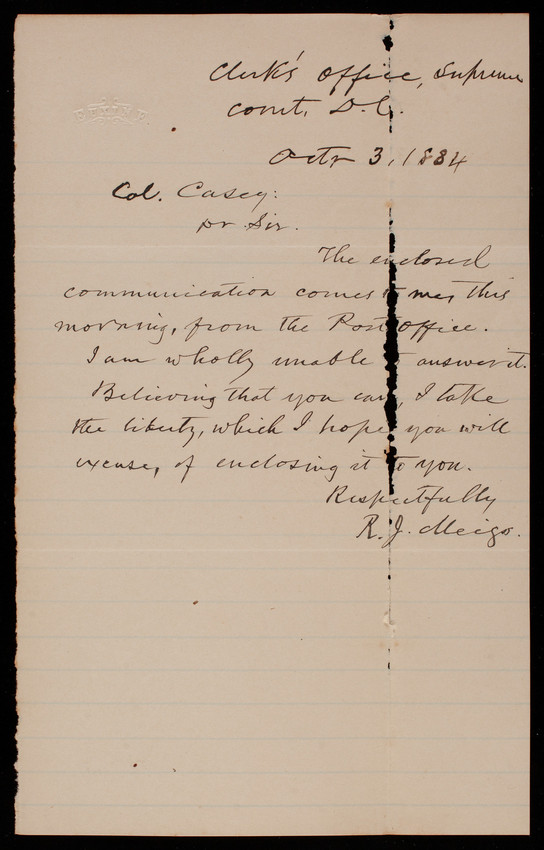 Clerk's Office, Supreme
Court, D.C.
Octr 3, 1884
Col. Casey:
Dr Sir.
The enclosed
communication comes to me, this
morning, from the Post Office.
I am wholly unable to answer it.
Believing that you can, I take
the liberty, which I hope you will
excuse, of enclosing it to you.
Respectfully
R. J. Meigs.